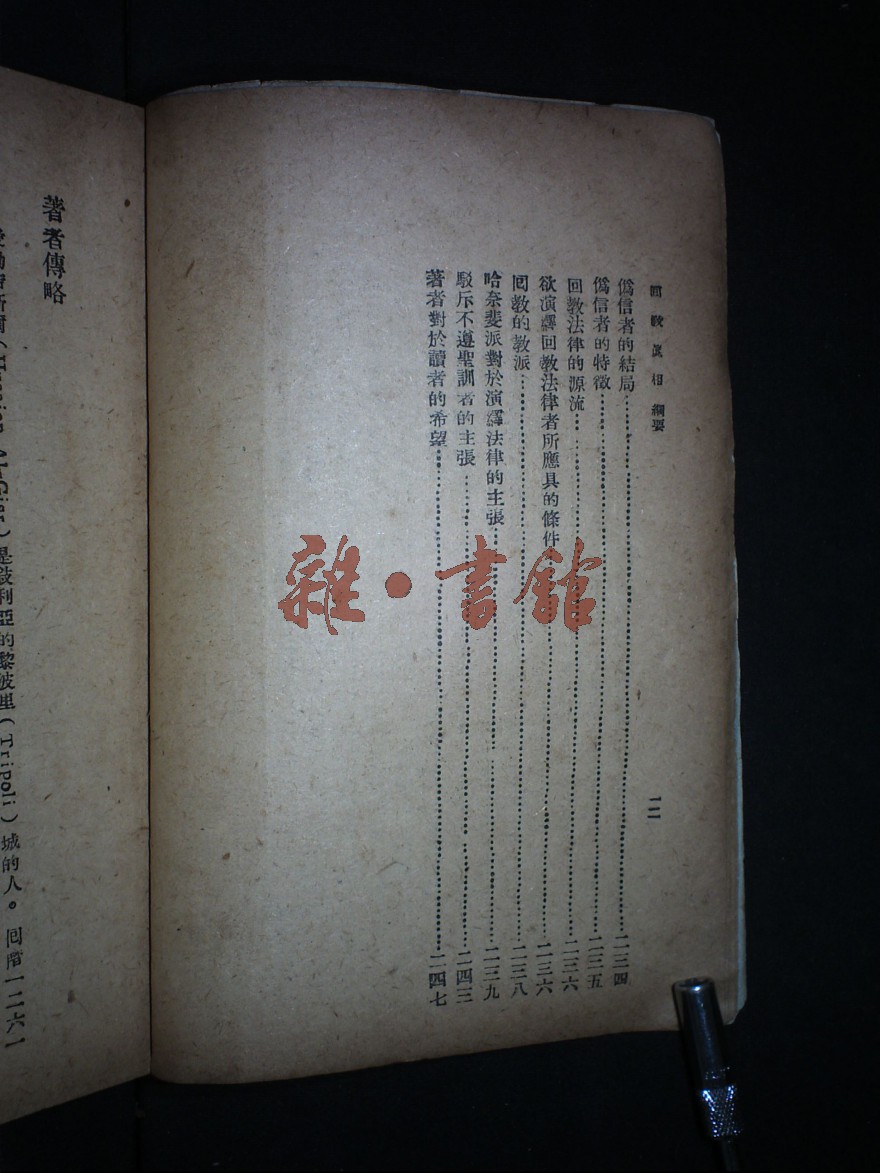 回教眞相 綱要
一二
僞信者的結局……二三四
僞信者的特徵……二三五
回教法律的源流……二三六
欲演繹回教法律者所應具的條件……二三六
回教的教派……二三八
哈奈斐派對於演繹法律的主張……二三九
駁斥不遵聖訓者的主張……二四三
著者對於讀者的希望……二四七
雜·書館
著者傳略
是敍利亞的黎波里(Tripoli)城的人。回曆一二六一